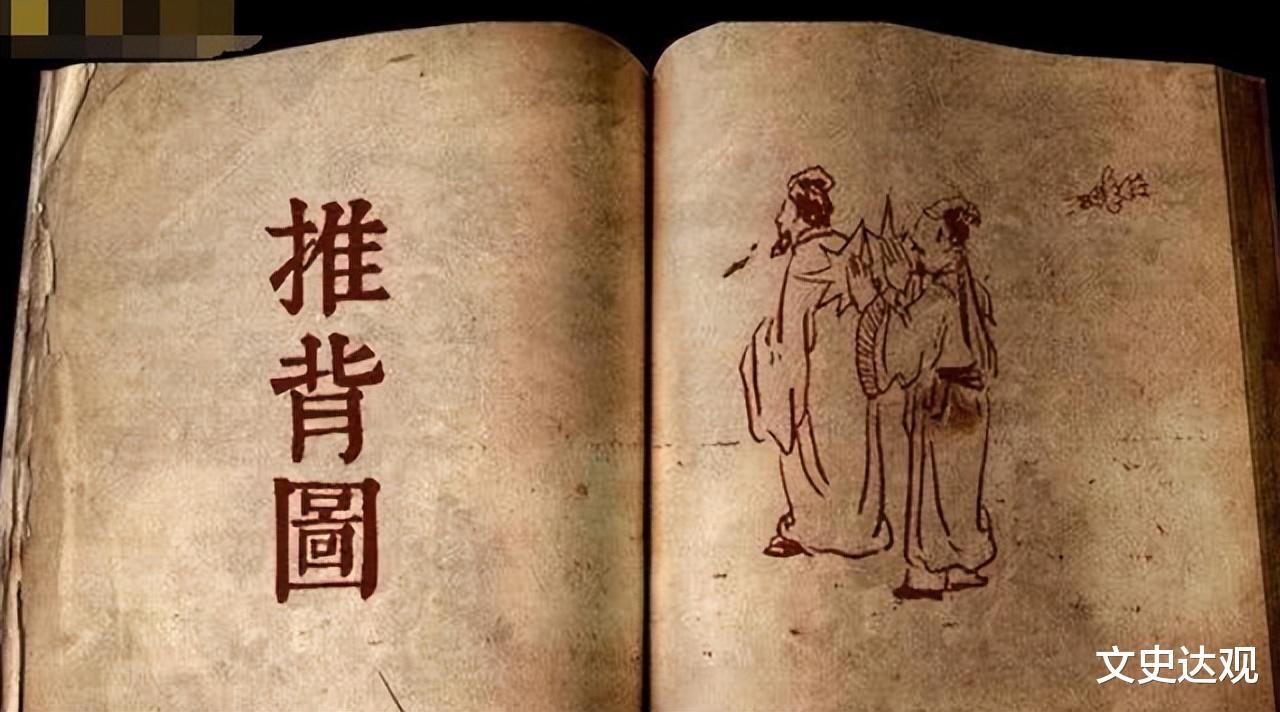 推背圖
文史达观